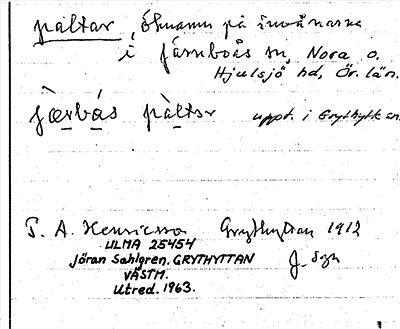 paltar, öknamn på invånarna
i Järnboås sn, Nora o.
Hjulsjö hd, Ör. län.
jæ̀rbás pàltar uppt. i Grythyttan
T. A. Henricsson Grythyttan 1912
ULMA 25454
Jöran Sahlgren. GRYTHYTTAN
VÄSTM.
Utred. 1963.